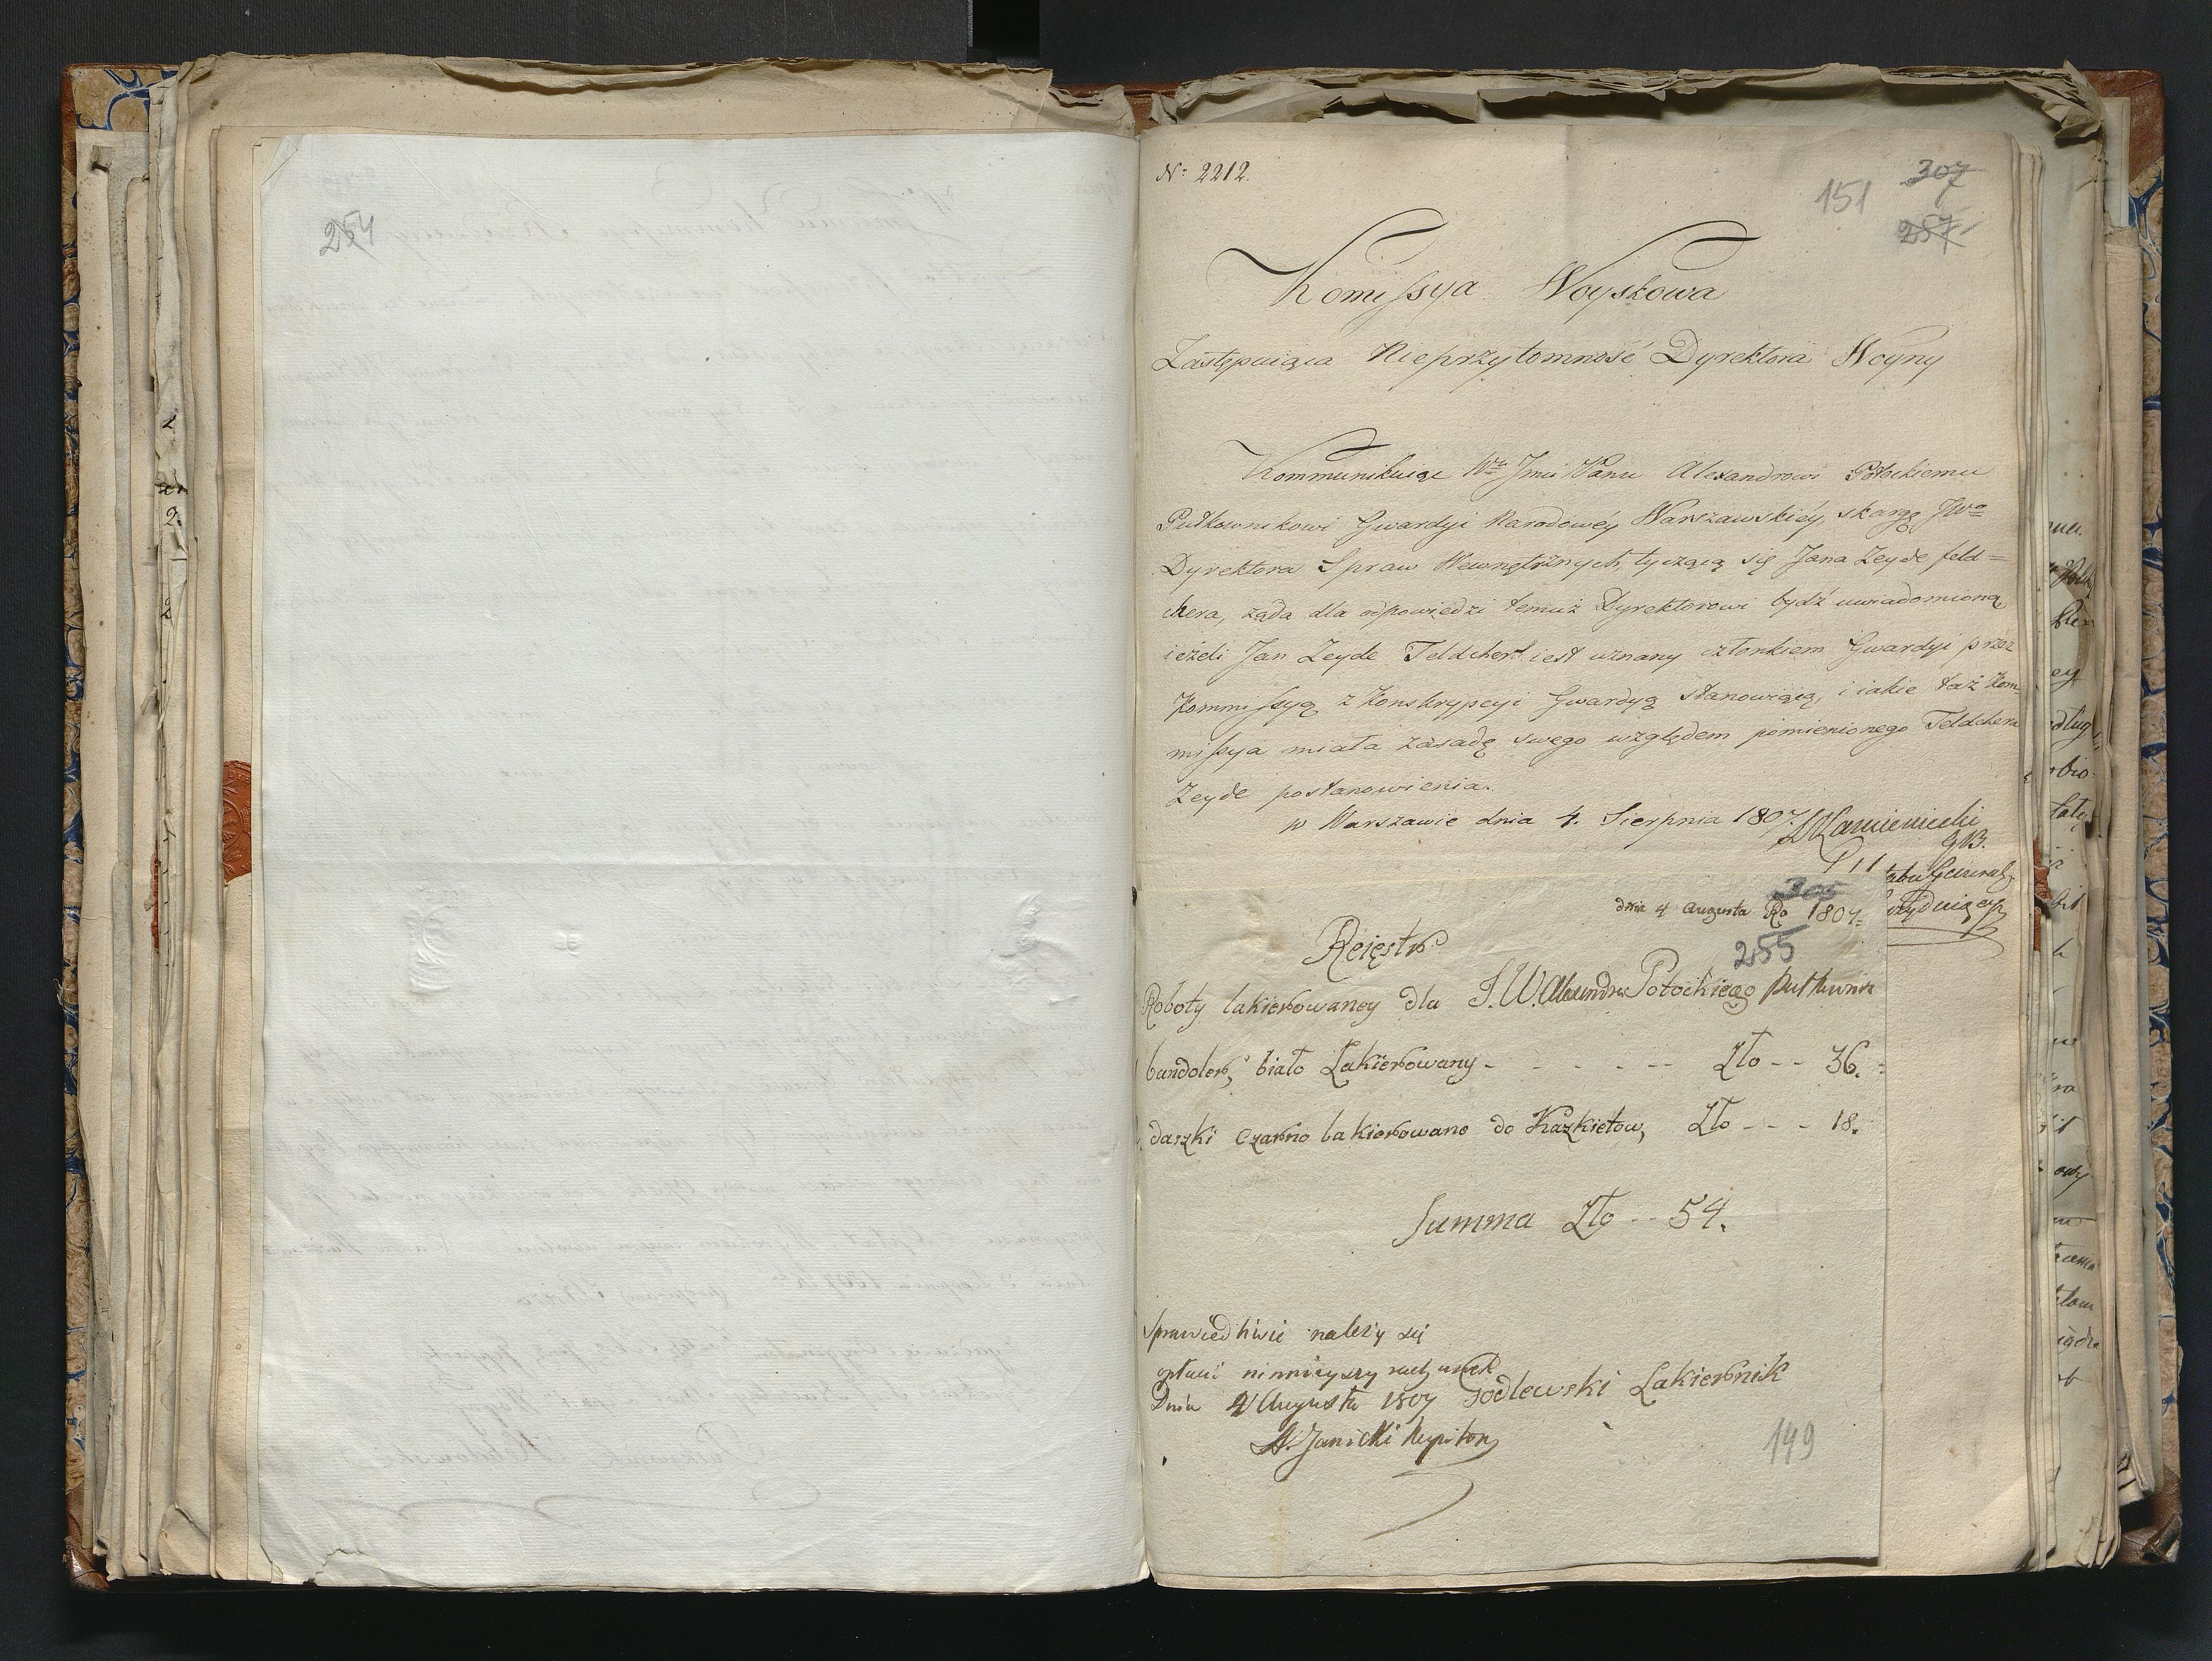 254
No 2212.
151
307
257
Komissya Woyskowa
Zastępuiąca Nieprzytomność Dyrektora Woyny
Kommunikuiąc Wmu Jmci Panu Alexandrowi Potockiemu
Pułkownikowi Gwardyi Narodowéy Warszawskiéy, skargę JWo
Dyrektora Spraw Wewnętrznych, tyczącą się Jana Zeyde feld=
chera, żąda dla odpowiedzi temuż Dyrektorowi bydź uwiadomioną
ieżeli Jan Zeyde Feldcher iest uznany członkiem Gwardyi przez
Kommissyą z Konskrypcyi Gwardyą stanowiącą, i iakie taż Kom=
missya miała zasadę swego względem pomienionego Feldchera
Zeyde postanowienia.
w Warszawie dnia 4. Sierpnia 1807.
Kamieniecki
GB.
305
dnia 4 Augusta Ro 1807=
255
Reięstr
Roboty lakierowaney dla J. W. Alexandra Potockiego Pułkownika
bandoler, biało Lakierowany - - - - - -- Zło -- 36.
daszki Czarno lakierowane do Kazkietow, Zło - - - 18.
Summa Zło -- 54.
Sprawiedliwie należy się
opłacić ninnieyszy rachunek
Dnia 4 Augusta 1807
Godlewski Lakiernik
Janicki Kapitan
149